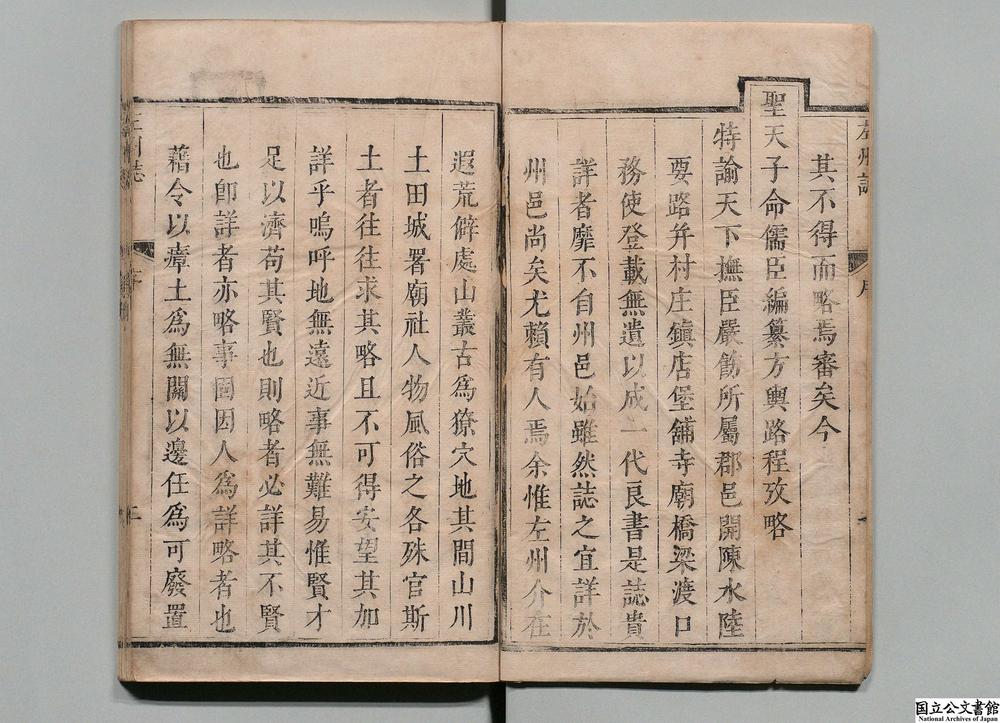 其不得而略焉審矣今
聖天子命儒臣編纂方輿路程攷略
特諭天下撫臣嚴飭所屬郡邑開陳水陸
要路并村庄鎮店堡舖寺廟橋梁渡口
務使登載無遺以成一代良書是誌貴
詳者靡不自州邑始雖然誌之宜詳於
州邑尚矣尤賴有人焉余惟左州介在
遐荒僻處山叢古為獠穴地其間山川
土田城署廟社人物風俗之各殊官斯
土者往往求其略且不可得安望其加
詳乎嗚呼地無遠近事無難易惟賢才
足以濟苟其賢也則略者必詳其不賢
也卽詳者亦略事固因人為詳略者也
藉令以瘴土為無關以邊任為可廢置
国立公文書館
National Archives of Japan